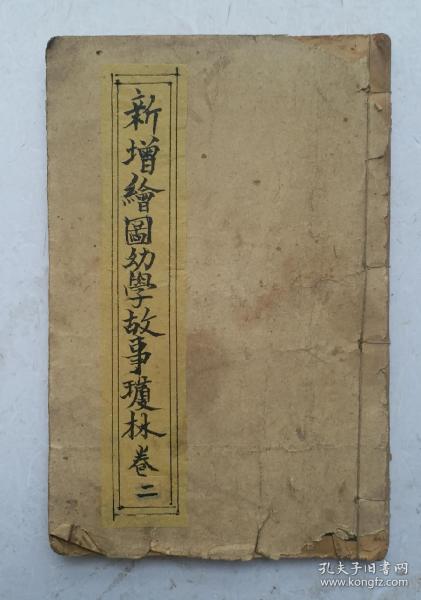 新增繪圖幼學故事瓊林卷二
孔夫子旧书网
www.kongfz.com